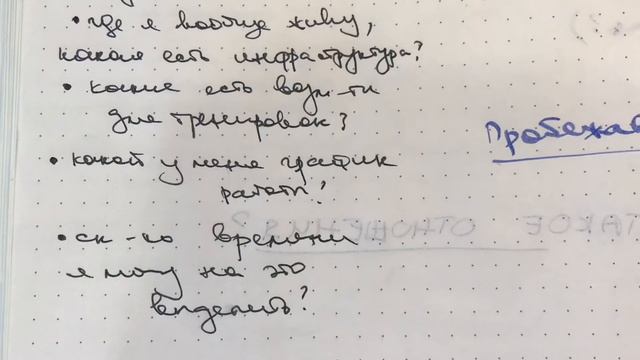 • где я вообще живу,
какая есть инфраструктура?
• какие есть возм-ти
для тренировок?
• какой у меня график
работы?
• ск-ко времени
я могу на это
выделить?
Пробежа
ТАКОЕ ОТНОШЕНИЯ?